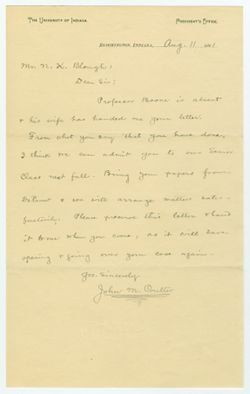 THE UNIVERSITY OF INDIANA. PRESIDENT'S OFFICE.
BLOOMINGTON, INDIANA, Aug. 11 1891.
Mr. N. K. Blough;
Dear Sir;
Professor Boone is absent
& his wife has handed me your letter.
From what you say that you have done,
I think we can admit you to our Senior
Class next fall. Bring your papers from
& we will arrange matters satis-
factorily. Please preserve this letter & hand
it to me when you come, as it will save
opening & going over your case again.
Yrs. Sincerely
John M. Coulter